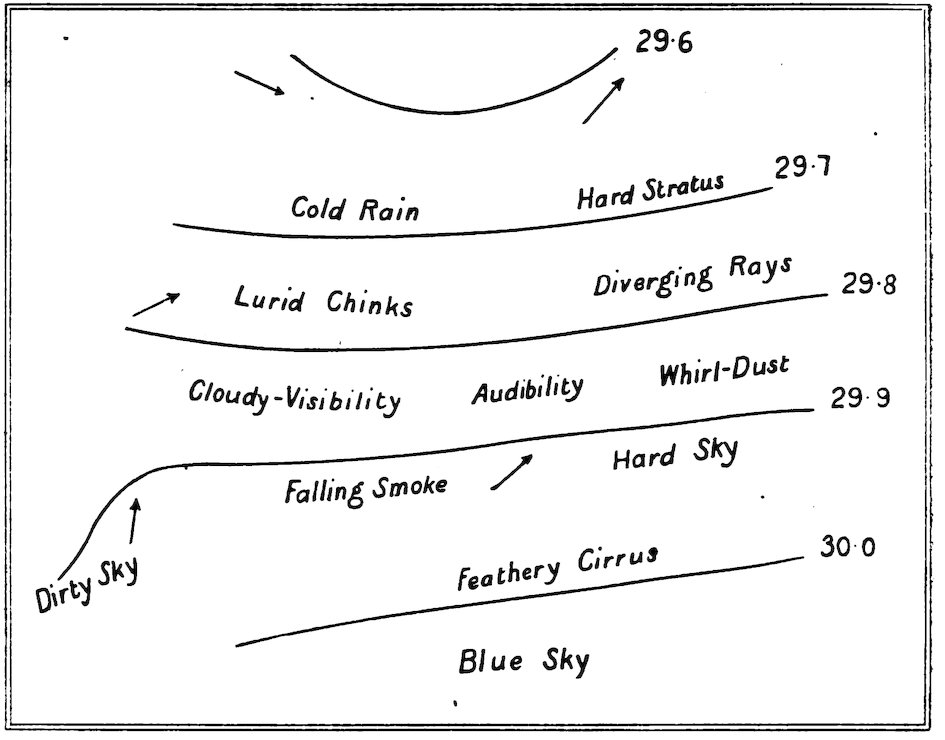 29·6
29·7
Cold Rain Hard Stratus
Lurid Chinks Diverging Rays 29·8
Cloudy-Visibility Audibility Whirl-Dust 29·9
Falling Smoke Hard Sky
Dirty Sky
Feathery Cirrus 30·0
Blue Sky